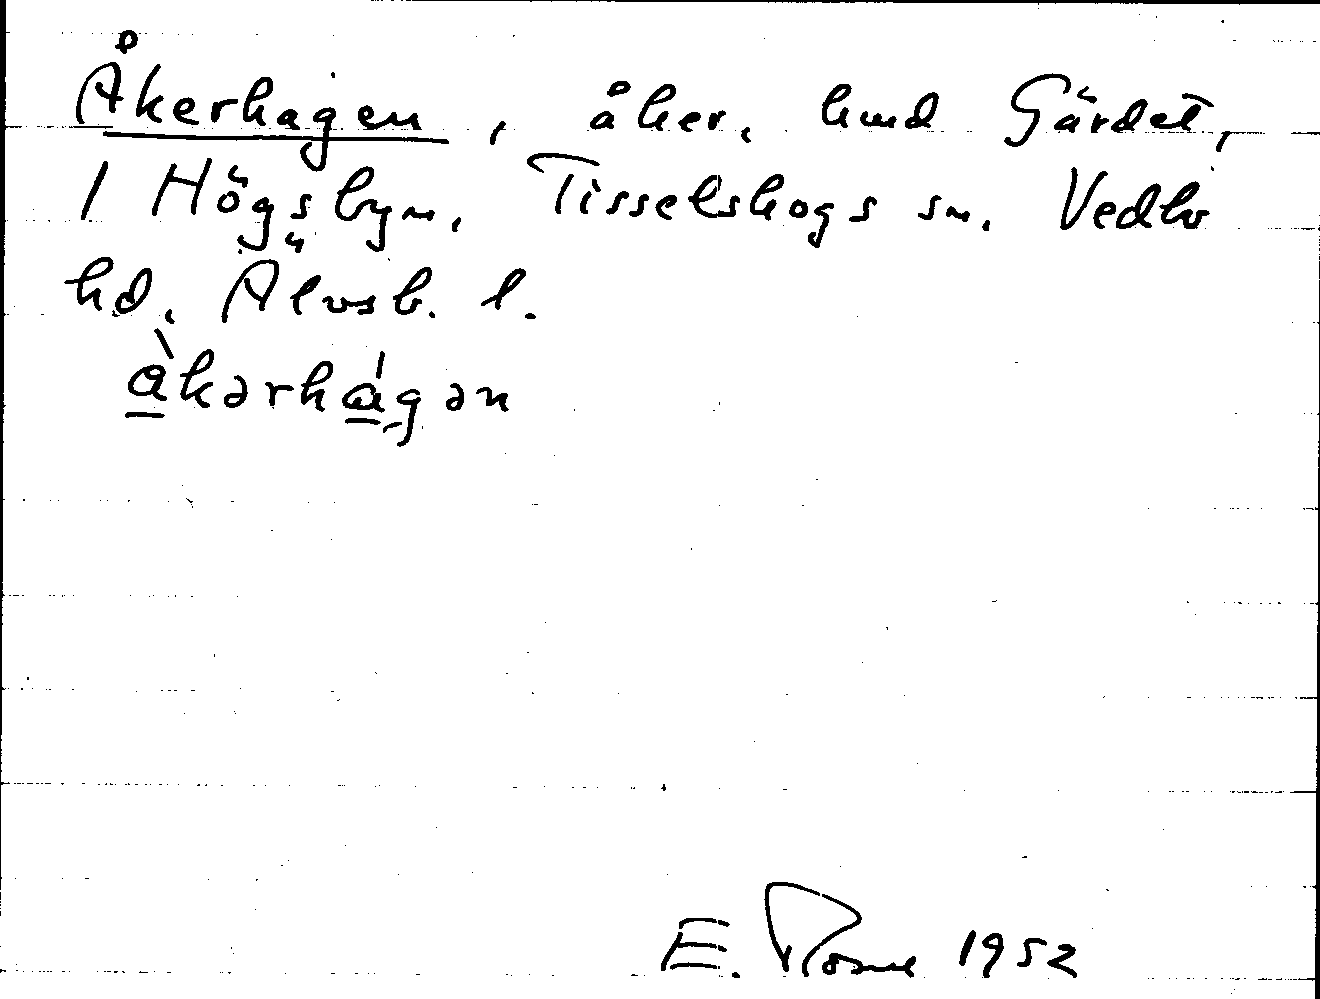 Åkerhagen, åker, hmd Gärdet,
1 Högsbyn, Tisselskogs sn. Vedbo
hd. Älvsb. l.
à̲kərhá̲gən
E. 1952